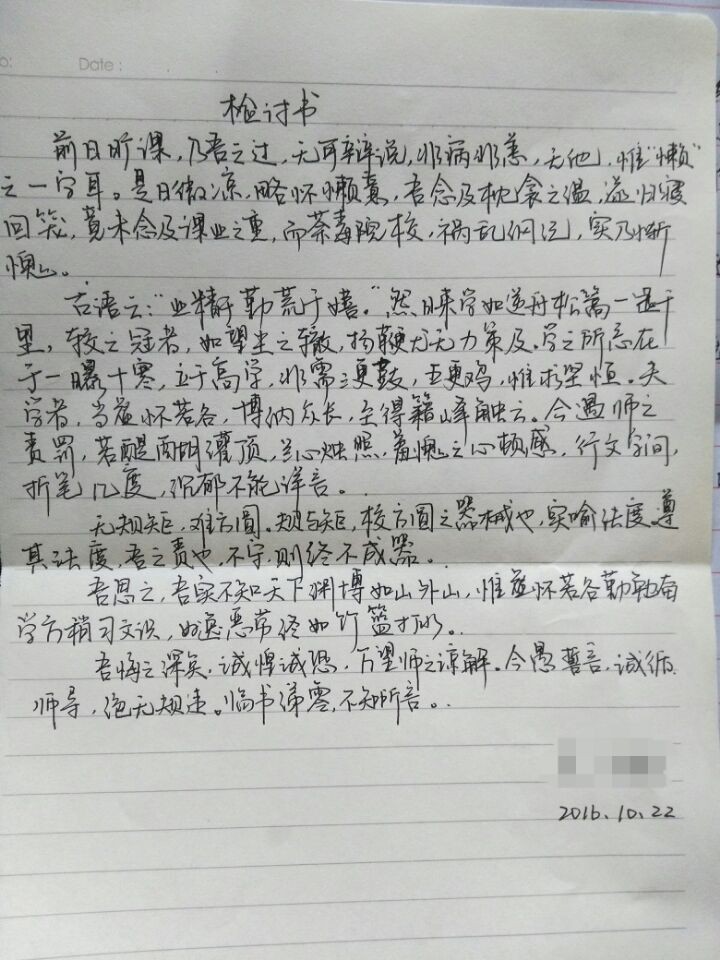 o:
Date:
检讨书
前日旷课，乃吾之过，无可辩说，非病非恙，无他，惟“懒”
之一字耳。是日微凉，略怀懒意，吾念及枕衾之温，遂归寝
回笼，竟未念及课业之重，而荼毒院校，祸乱纲纪，实乃惭
愧。
古语云：“业精于勤荒于嬉。”然日来学如逆舟松篙一退千
里，较之冠者，如望尘之辙，扬鞭尤无力策及。学之所忌在
于一曝十寒，立于高学，非需三更鼓，五更鸡，惟求坚恒。夫
学者，当虚怀若谷，博纳众长，至得籍峰触云。今遇师之
责罚，若醍醐灌顶，兰心烛照，羞愧之心顿感，行文字间，
折笔几度，沉郁不能详言。
无规矩，难方圆。规与矩，校方圆之器械也，实喻法度遵
其法度，吾之责也，不守，则终不成器。
吾思之，吾实不知天下渊博如山外山，惟虚怀若谷勤勉奋
学方稍习文识，如怠恶常终如竹篮打水。
吾悔之深矣，诚惶诚恐，万望师之谅解。今愚誓言，诚循
师导，绝无规违。临书涕零，不知所言。
2016.10.22